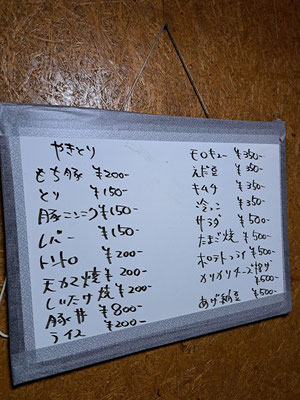 やきとり
もち豚 ¥200-
とり ¥150-
豚ニンニク ¥150-
レバー ¥150-
トントロ ¥200-
天カマ焼 ¥200-
しいたけ焼 ¥200-
豚丼 ¥800-
ライス ¥200-
モロキュー ¥350-
えだ豆 ¥350-
キムチ ¥350-
冷ヤッコ ¥350-
サラダ ¥500-
たまご焼 ¥500-
ポテトフライ ¥500-
カリカリチーズ揚げ
¥500-
あげ納豆 ¥500-